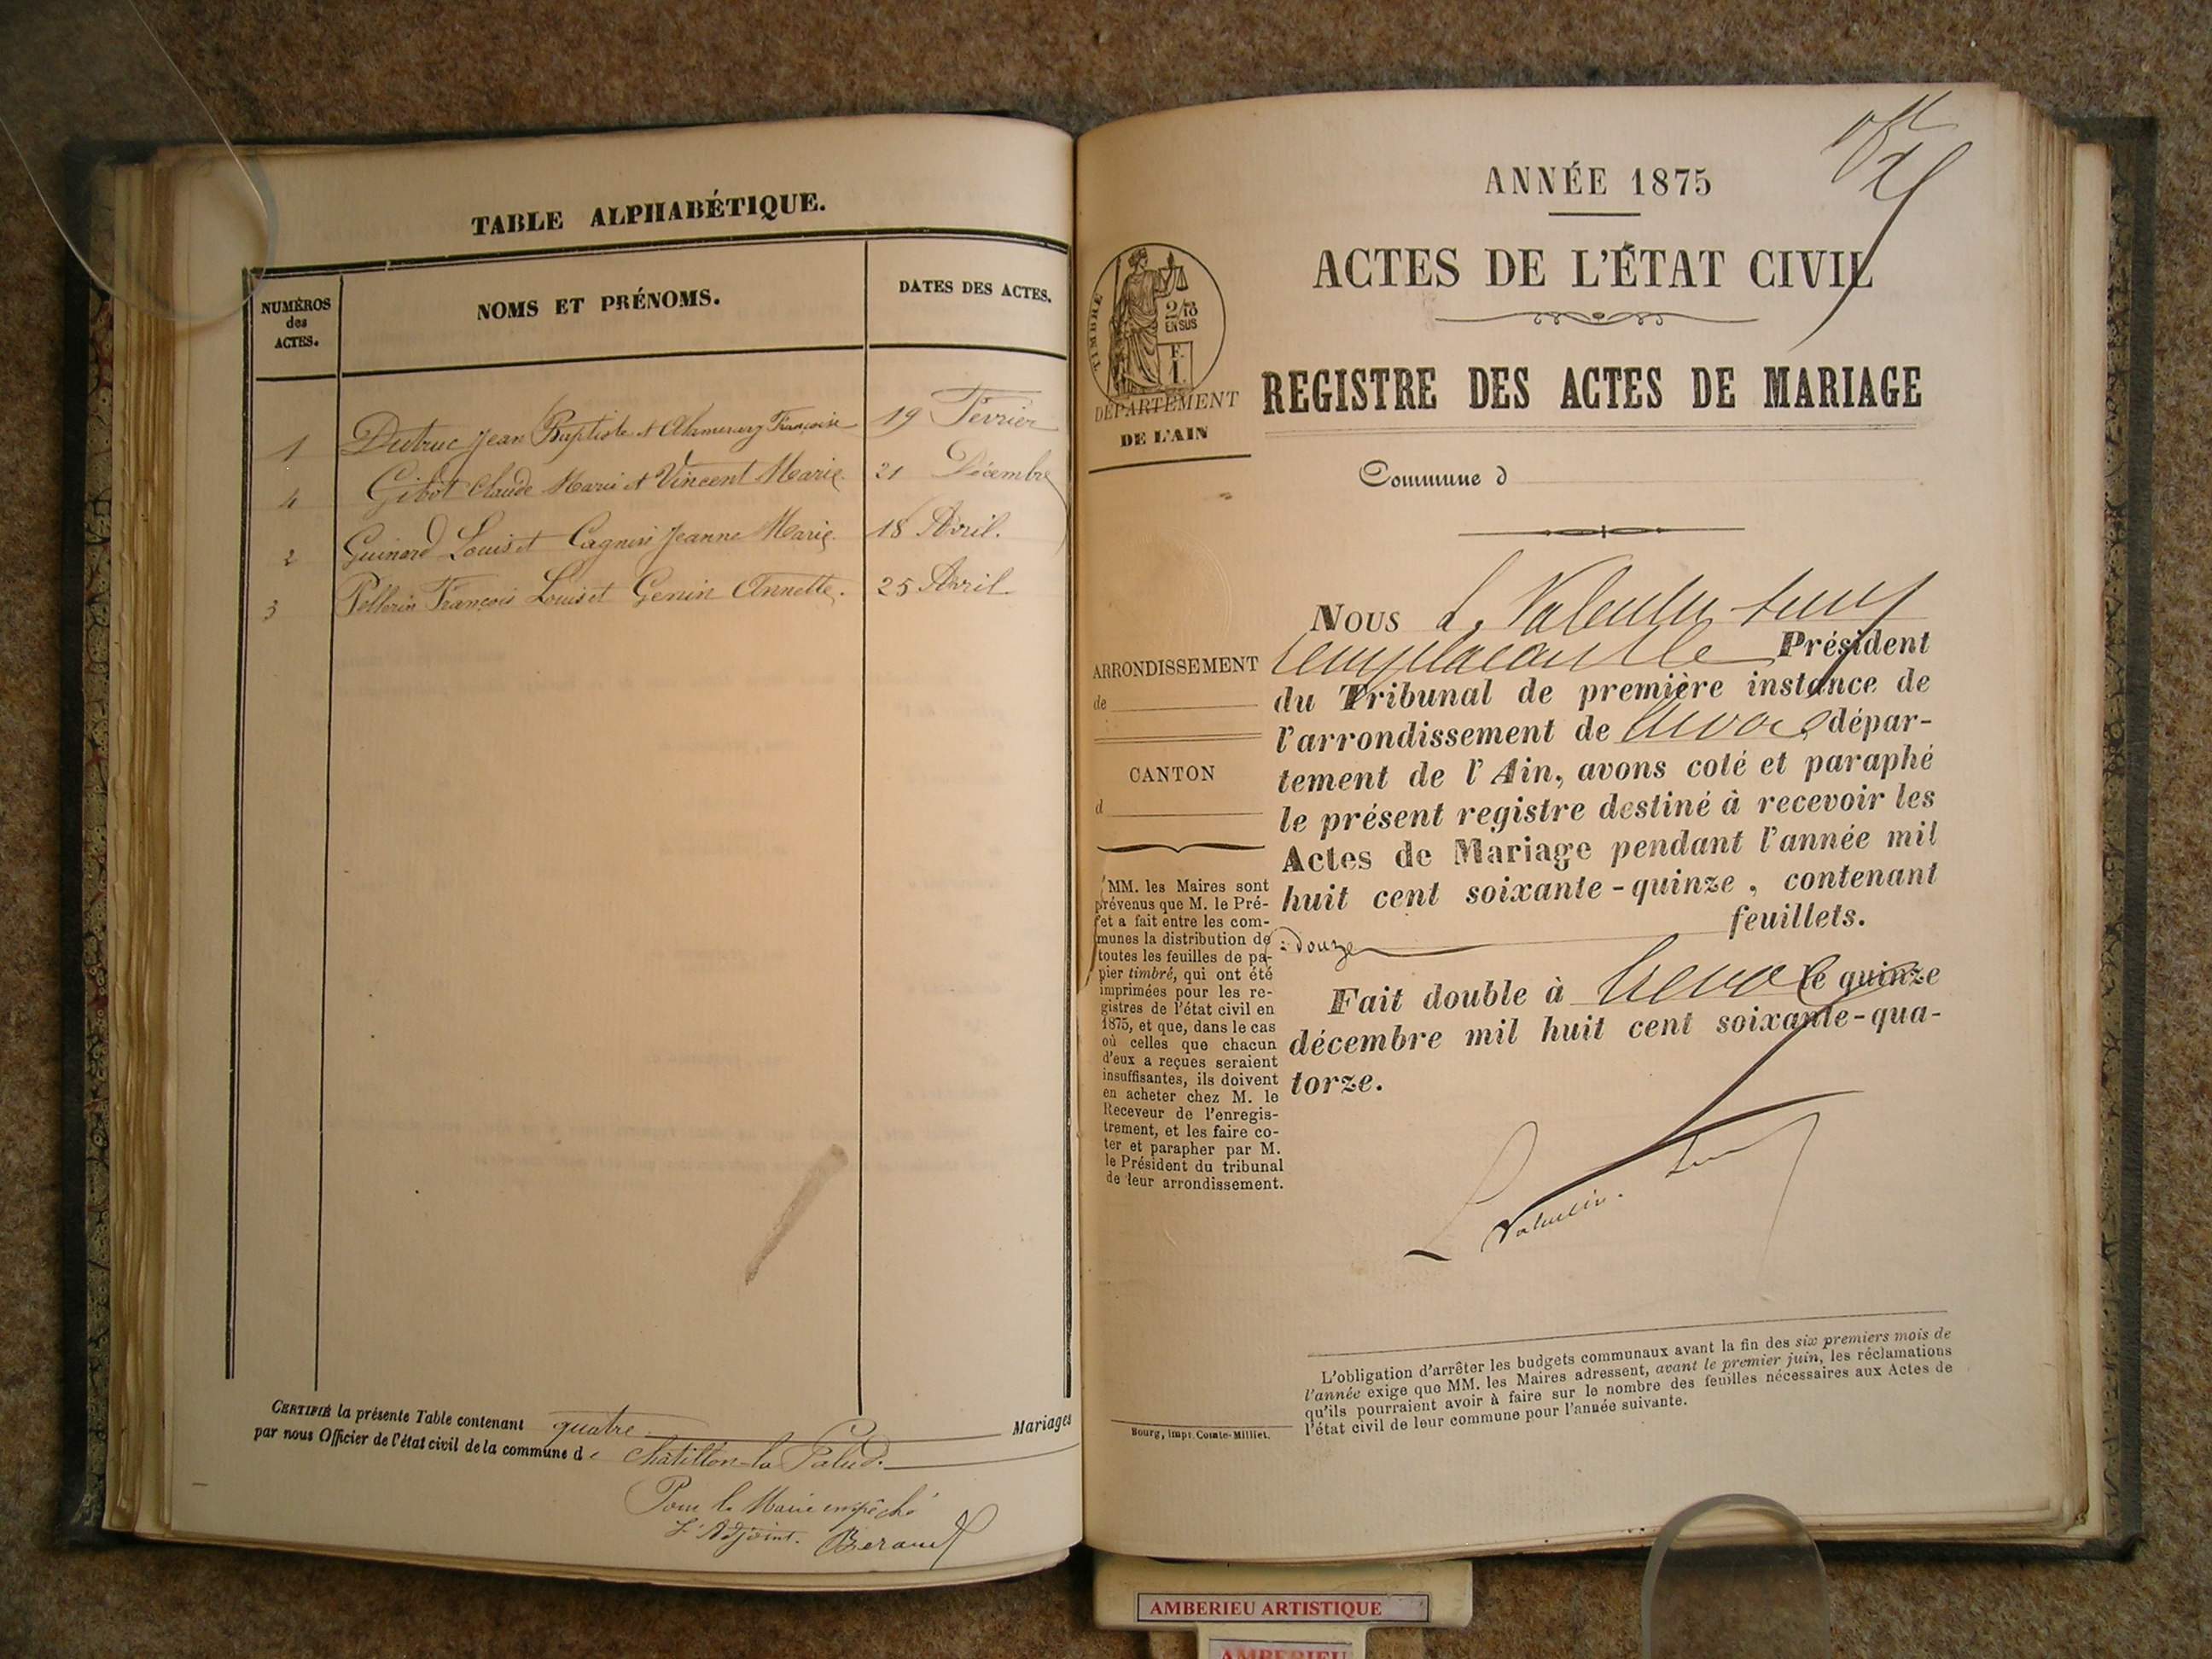 TABLE ALPHABÉTIQUE.
NUMÉROS
des
ACTES.
NOMS ET PRÉNOMS.
DATES DES ACTES.
1 Dutruc Jean Baptiste et Françoise 19 Février
4 Gibot Claude Marie et Vincent Marie. 21 Décembre
2 Guinard Louis et Jeanne Marie. 18 Avril.
3 Pellerin François Louis et Genin Annette. 25 Avril.
CERTIFIÉ la présente Table contenant quatre Mariages
par nous Officier de l'état civil de la commune de Chatillon-la Palud.
Pour le Maire empêché
L'Adjoint. Beraud
ANNÉE 1875
ACTES DE L'ÉTAT CIVIL
REGISTRE DES ACTES DE MARIAGE
TIMBRE
2/10
EN SUS
F.
1.
DÉPARTEMENT
DE L'AIN
Commune d
ARRONDISSEMENT
de
CANTON
d
MM. les Maires sont
prévenus que M. le Pré-
fet a fait entre les com-
munes la distribution de
toutes les feuilles de pa-
pier timbré, qui ont été
imprimées pour les re-
gistres de l'état civil en
1875, et que, dans le cas
où celles que chacun
d'eux a reçues seraient
insuffisantes, ils doivent
en acheter chez M. le
Receveur de l'enregis-
trement, et les faire co-
ter et parapher par M.
le Président du tribunal
de leur arrondissement.
Bourg, impr. Comte-Milliet.
NOUS L. Valentin
remplaçant le Président
du Tribunal de première instance de
l'arrondissement de Trévoux dépar-
tement de l'Ain, avons coté et paraphé
le présent registre destiné à recevoir les
Actes de Mariage pendant l'année mil
huit cent soixante-quinze, contenant
douze feuillets.
Fait double à Trévoux le quinze
décembre mil huit cent soixante-qua-
torze.
L Valentin.
L'obligation d'arrêter les budgets communaux avant la fin des six premiers mois de
l'année exige que MM. les Maires adressent, avant le premier juin, les réclamations
qu'ils pourraient avoir à faire sur le nombre des feuilles nécessaires aux Actes de
l'état civil de leur commune pour l'année suivante.
AMBERIEU ARTISTIQUE
AMBERIEU